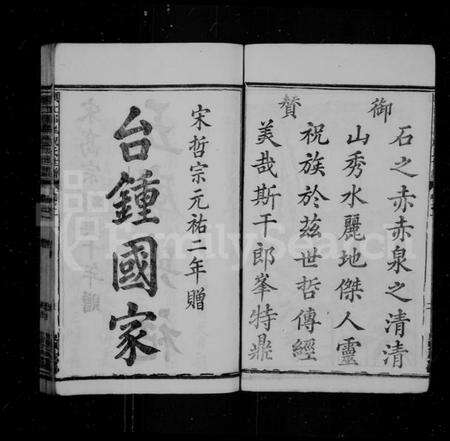 御贊
石之赤赤泉之清清
山秀水麗地傑人靈
祝族於茲世哲傳經
美哉斯干郎峯特鼎
宋哲宗元祐二年贈
台鍾國家
FamilySearch